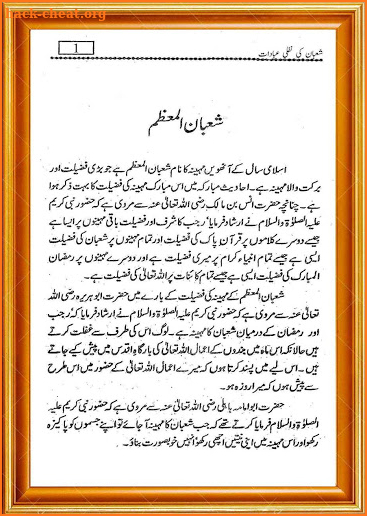 hack-cheat.org
1
شعبان کی نفلی عبادات
شعبان المعظم
اسلامی سال کے آٹھویں مہینہ کا نام شعبان المعظم ہے جو بڑی فضیلت اور
برکت والا مہینہ ہے۔ احادیث مبارکہ میں اس مبارک مہینہ کی فضیلت کا بہت ذکر ہوا
ہے۔ چنانچہ حضرت انس بن مالک رضی اللہ تعالیٰ عنہ سے مروی ہے کہ حضور نبی کریم
علیہ الصلوٰۃ والسلام نے ارشاد فرمایا ''رجب کا شرف اور فضیلت باقی مہینوں پر ایسا ہے
جیسے دوسرے کلاموں پر قرآن پاک کی فضیلت اور تمام مہینوں پر شعبان کی فضیلت
ایسی ہے جیسے تمام انبیاء کرام پر میری فضیلت ہے اور دوسرے مہینوں پر رمضان
المبارک کی فضیلت ایسی ہے جیسے تمام کائنات پر اللہ تعالیٰ کی فضیلت ہے۔
شعبان المعظم کے مہینہ کی فضیلت کے بارے میں حضرت ابو ہریرہ رضی اللہ
تعالیٰ عنہ سے مروی ہے کہ حضور نبی کریم علیہ الصلوٰۃ والسلام نے ارشاد فرمایا کہ رجب
اور رمضان کے درمیان شعبان کا مہینہ ہے۔ لوگ اس کی طرف سے غفلت کرتے
ہیں حالانکہ اس ماہ میں بندوں کے اعمال اللہ تعالیٰ کی بارگاہ اقدس میں پیش کیے جاتے
ہیں۔ اس لیے میں پسند کرتا ہوں کہ میرے اعمال اللہ تعالیٰ کے حضور میں اس طرح
سے پیش ہوں کہ میرا روزہ ہو۔
حضرت ابو امامہ باہلی رضی اللہ تعالیٰ عنہ سے مروی ہے کہ حضور نبی کریم علیہ
الصلوٰۃ والسلام فرمایا کرتے تھے کہ جب شعبان کا مہینہ آ جائے تو اپنے جسموں کو پاکیزہ
رکھو اور اس مہینہ میں اپنی نیتیں اچھی رکھو انہیں خوبصورت بناؤ۔